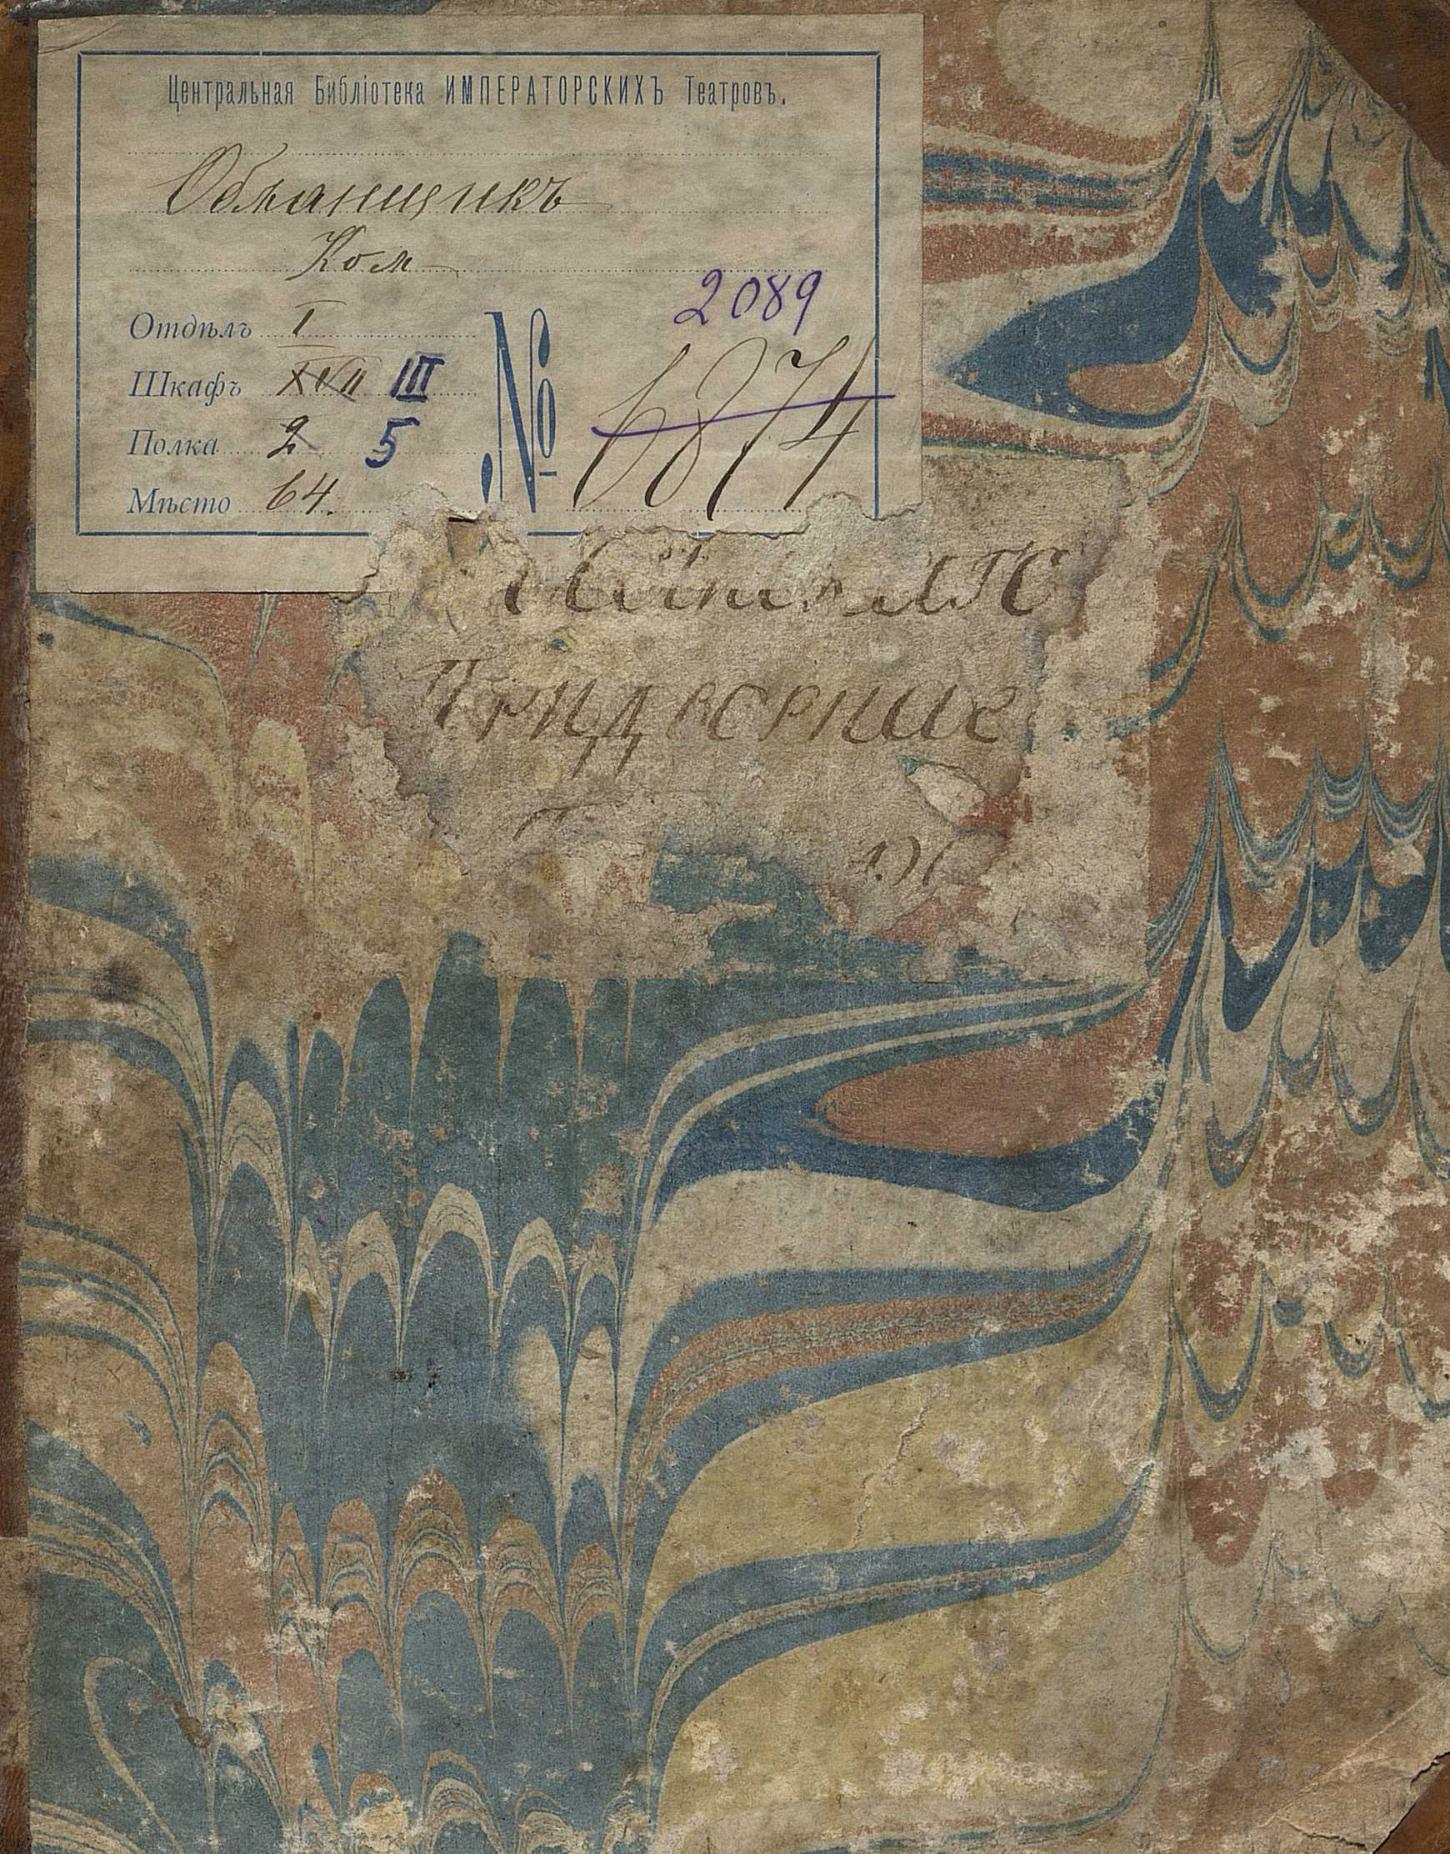 Центральная Библіотека ИМПЕРАТОРСКИХЪ Театровъ.
Обманщикъ
Ком
2089
Отдѣлъ I
Шкафъ XVII III
Полка 2 5
№ 6874
Мѣсто 64.
Придворные